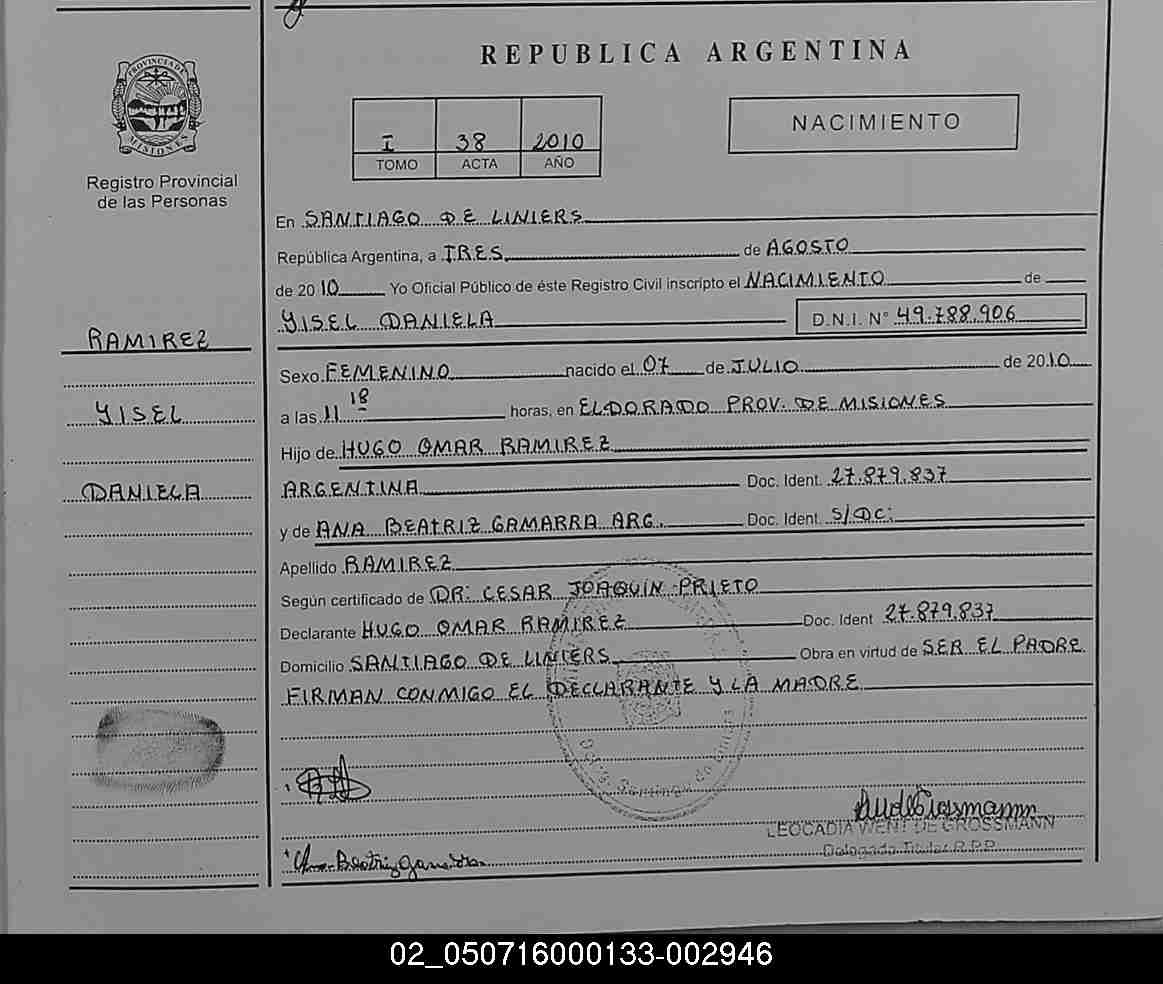 REPUBLICA ARGENTINA
PROVINCIA DE
MISIONES
Registro Provincial
de las Personas
I 38 2010
TOMO ACTA AÑO
NACIMIENTO
En SANTIAGO DE LINIERS
República Argentina, a TRES de AGOSTO
de 2010 Yo Oficial Público de éste Registro Civil inscripto el NACIMIENTO de
YISEL DANIELA D.N.I. N° 49.788.906
Sexo FEMENINO nacido el 07 de JULIO de 2010
a las 11 18 horas, en ELDORADO PROV. DE MISIONES
Hijo de HUGO OMAR RAMIREZ
ARGENTINA Doc. Ident. 27.879.837
y de ANA BEATRIZ GAMARRA ARG. Doc. Ident. S/DC:
Apellido RAMIREZ
Según certificado de DR: CESAR JOAQUIN PRIETO
Declarante HUGO OMAR RAMIREZ Doc. Ident 27.879.837
Domicilio SANTIAGO DE LINIERS Obra en virtud de SER EL PADRE
FIRMAN CONMIGO EL DECLARANTE Y LA MADRE
RAMIREZ
YISEL
DANIELA
LEOCADIA WENT DE GROSSMANN
Delegada Titular R.P.P.
Ana Beatriz Gamarra
02_050716000133-002946